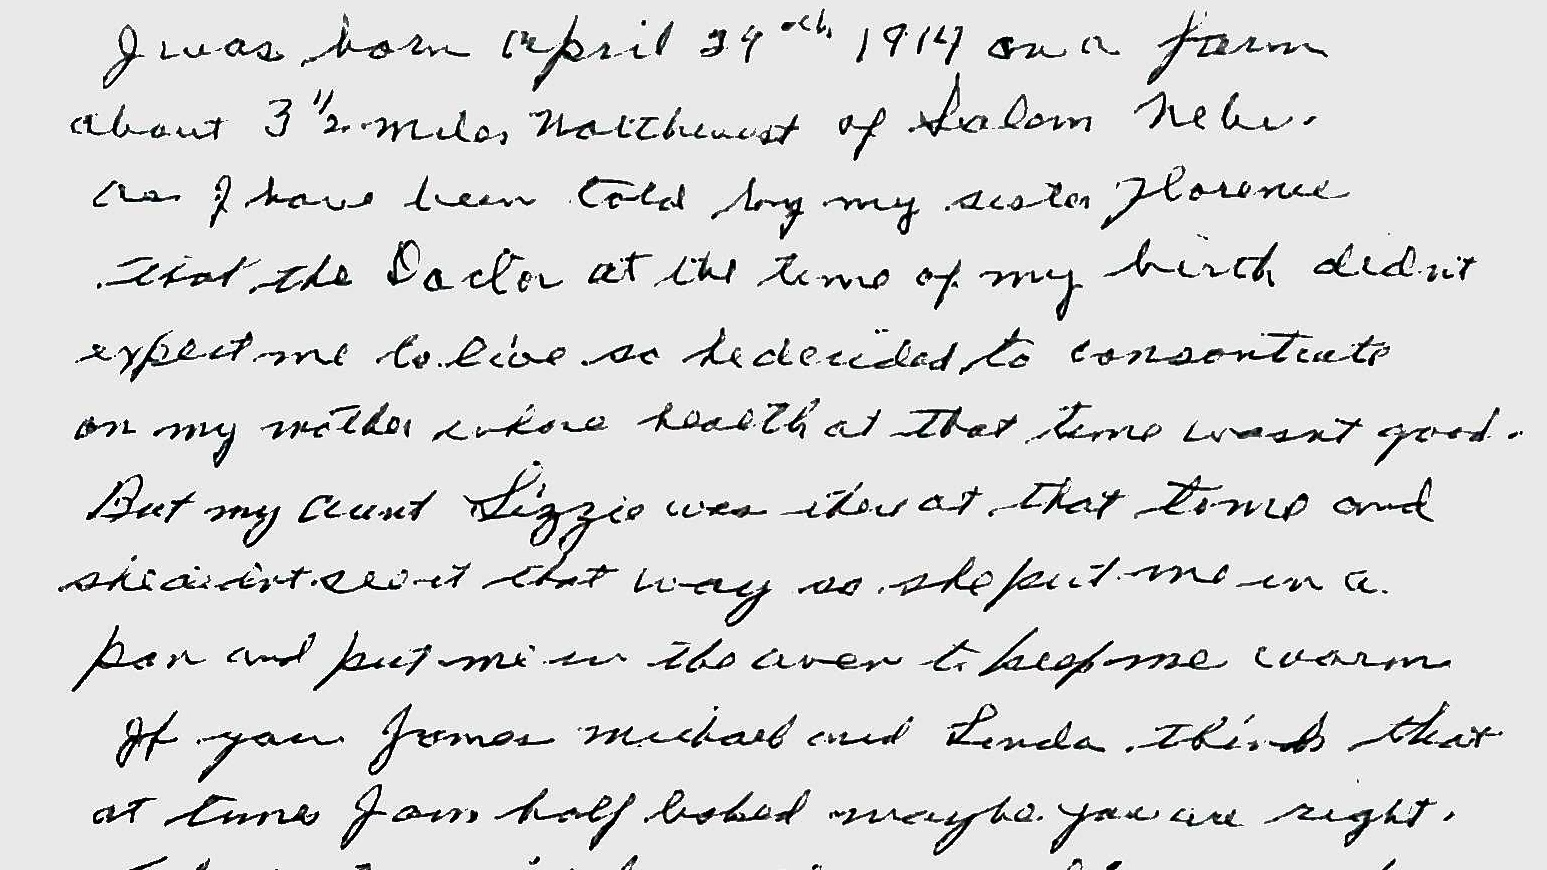 I was born April 29th 1914 on a farm
about 3 1/2 miles Northwest of Salem Nebr.
As I have been told by my sister Florence
that the Doctor at the time of my birth didnt
expect me to live so he decided to consontrate
on my mother whose health at that time wasnt good.
But my aunt Lizzie was there at that time and
she didnt see it that way so she put me in a
pan and put me in the oven to keep me warm
If you James Michael and Linda think that
at times I am half baked maybe you are right.